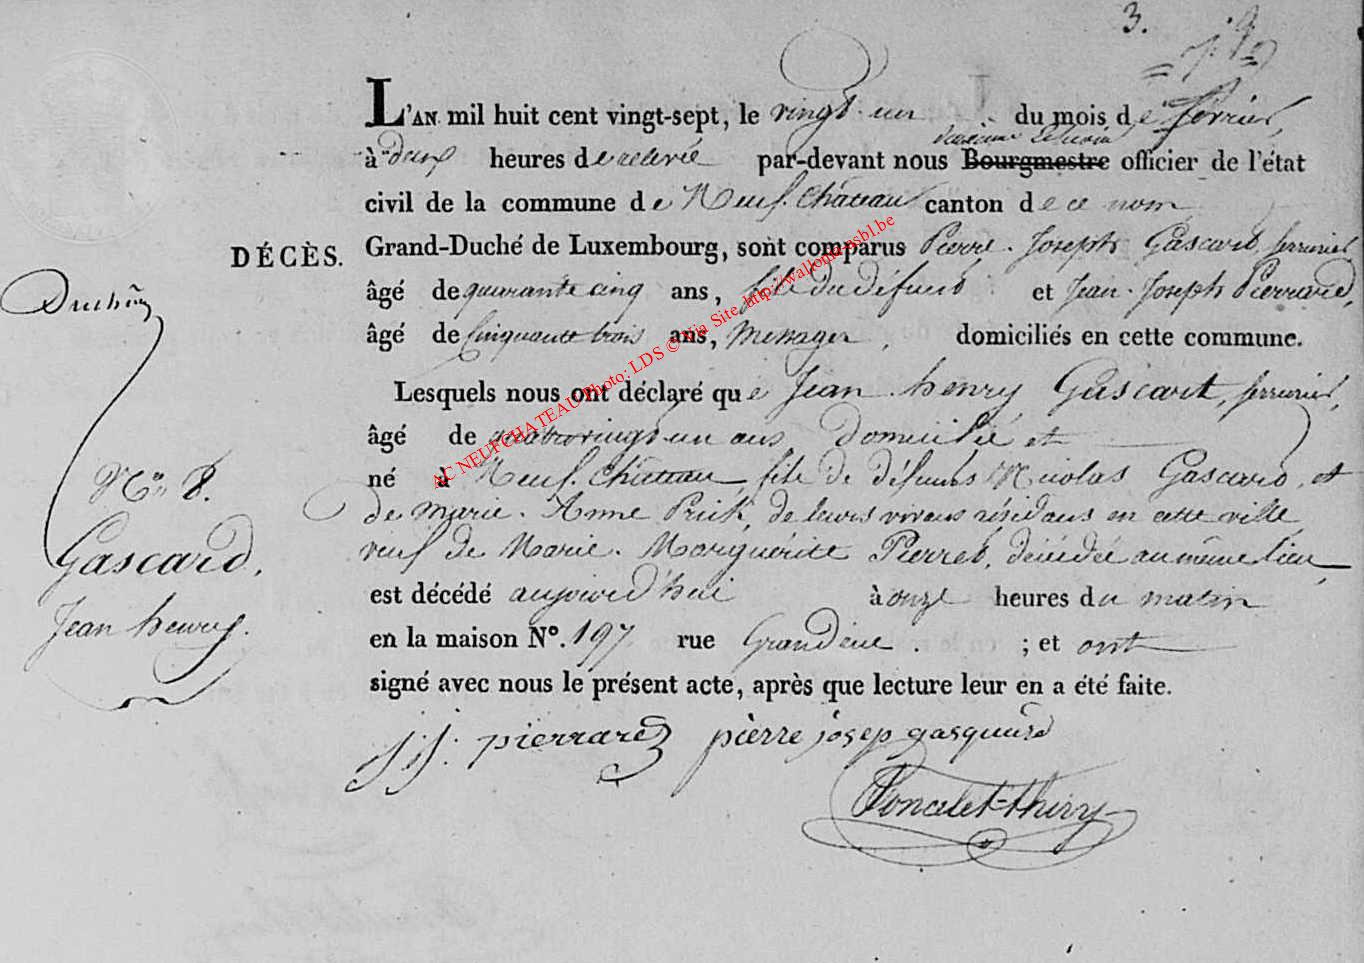 3.
L'AN mil huit cent vingt-sept, le vingt un du mois de février,
à deux heures de relevée par-devant nous Bourgmestre officier de l'état
civil de la commune de Neuf-Château canton de ce nom
DÉCÈS. Grand-Duché de Luxembourg, sont comparus Pierre-Joseph Gascard, serrurier
âgé de quarante cinq ans, fils du défunt et Jean-Joseph Pierrard,
âgé de cinquante trois ans, messager, domiciliés en cette commune.
Lesquels nous ont déclaré que Jean henry Gascart, serrurier,
âgé de quatrevingt-un ans domicilié et
né à Neuf-Château, fils de défunts Nicolas Gascard, et
de Marie-Anne Prick, de leurs vivans résidans en cette ville
veuf de Marie-Marguérite Pierret, décédée au même lieu,
est décédé aujourd'hui à onze heures du matin
en la maison N°. 197 rue Grande rue. ; et ont
signé avec nous le présent acte, après que lecture leur en a été faite.
No 8.
Gascard,
Jean henry.
j j. pierrard pièrre josep gasquard
Poncelet-thiry
AC NEUFCHATEAU Photo: LDS © Via Site http://wallonia-asbl.be